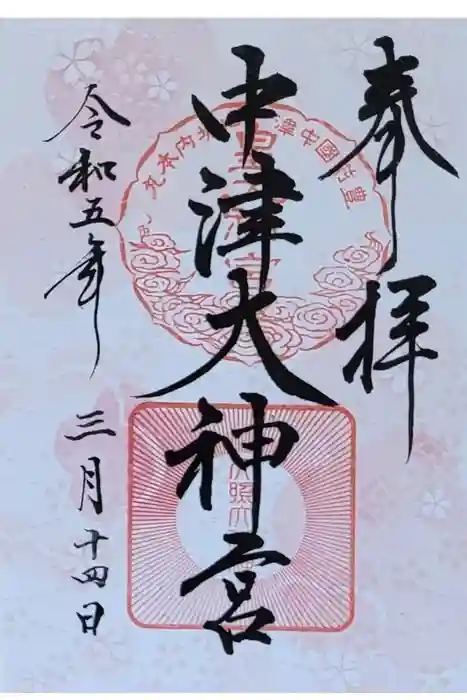 奉拝
中津大神宮
令和五年 三月十四日
豊前國中津
城内本丸